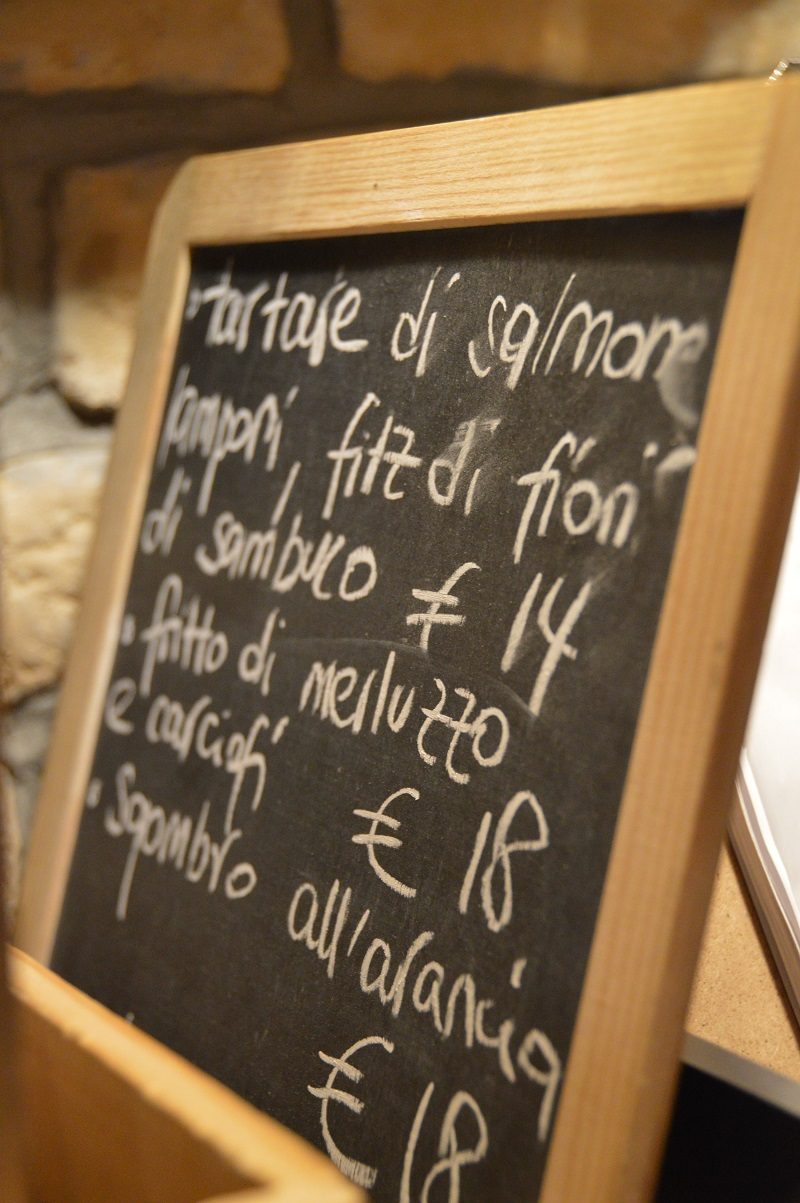 • tartare di salmone
lamponi, fitz di fiori
di sambuco € 14
• fritto di merluzzo
e carciofi
€ 18
• Sgombro all'arancia
€ 18